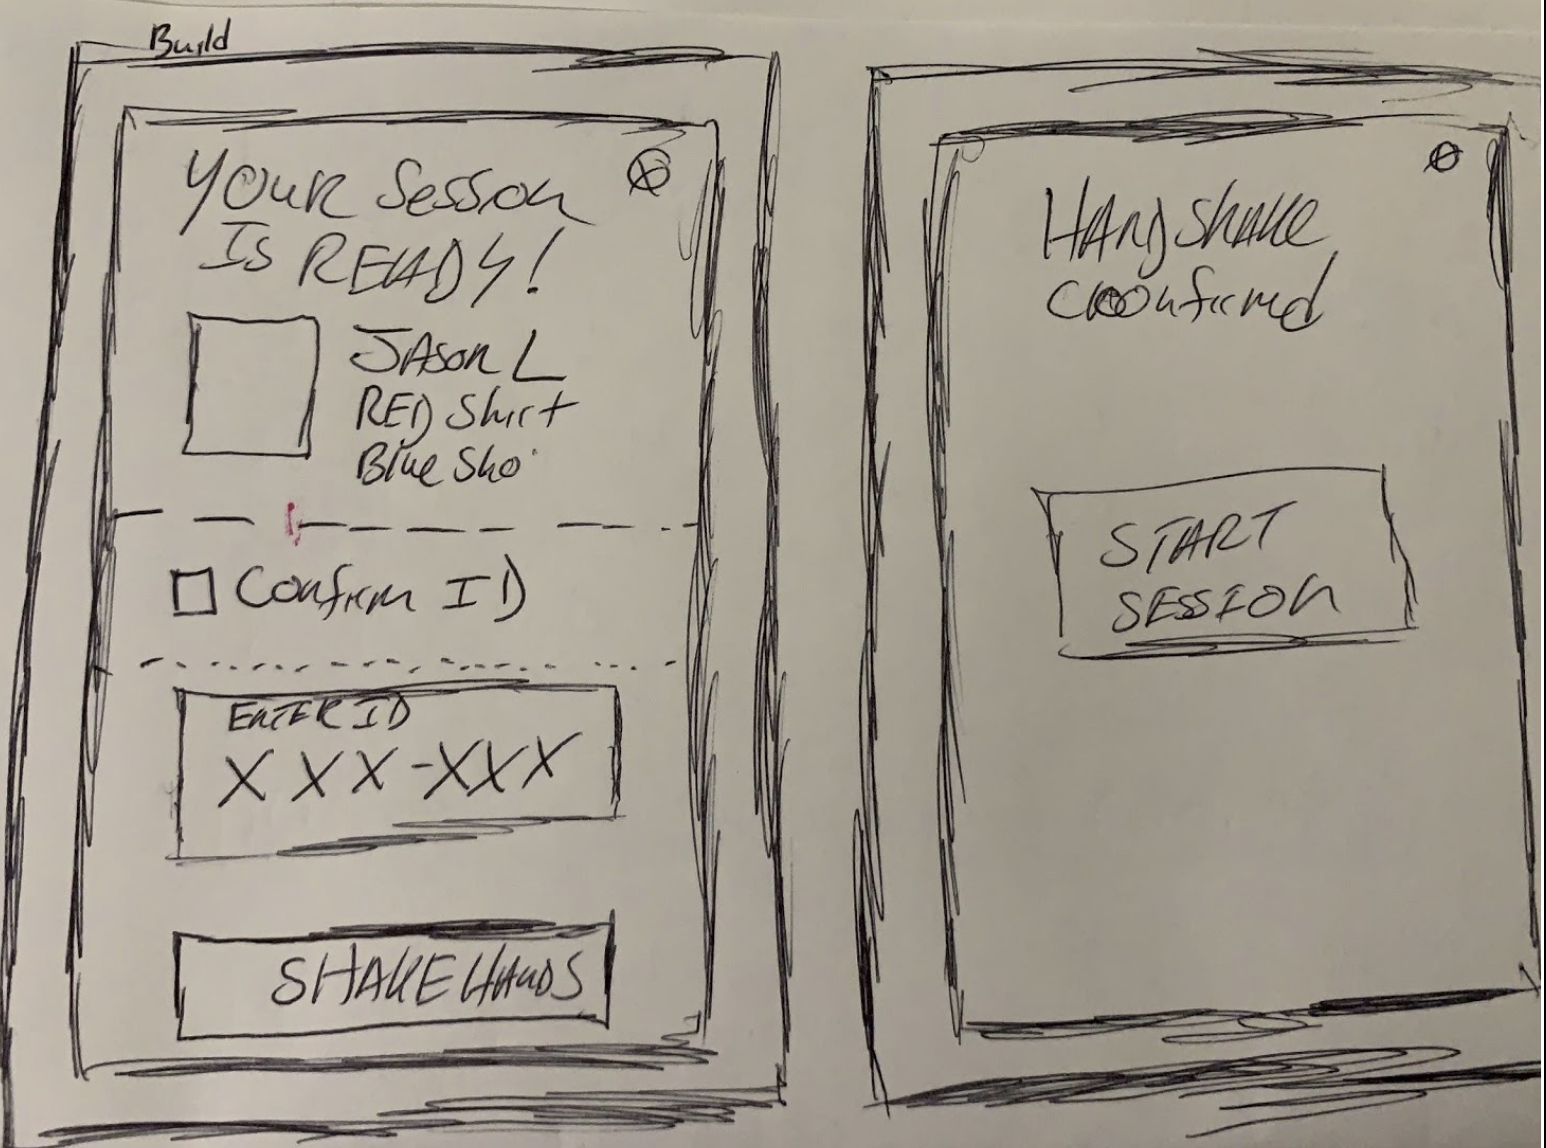 Build
YOUR Session
IS READY!
JASON L
RED Shirt
Blue Sho
Confirm ID
ENTER ID
XXX-XXX
SHAKE HANDS
HANDSHAKE
Confirmed
START
SESSION